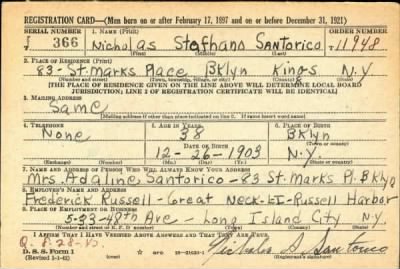 REGISTRATION CARD—(Men born on or after February 17, 1897 and on or before December 31, 1921)
SERIAL NUMBER 1. NAME (Print) ORDER NUMBER
366 Nicholas Stefhano Santorico T11948
(First) (Middle) (Last)
2. PLACE OF RESIDENCE (Print)
83- St. marks Place Bklyn Kings N.Y
(Number and street) (Town, township, village, or city) (County) (State)
[THE PLACE OF RESIDENCE GIVEN ON THE LINE ABOVE WILL DETERMINE LOCAL BOARD
JURISDICTION; LINE 2 OF REGISTRATION CERTIFICATE WILL BE IDENTICAL]
3. MAILING ADDRESS
Same
[Mailing address if other than place indicated on line 2. If same insert word same]
4. TELEPHONE 5. AGE IN YEARS 6. PLACE OF BIRTH
None 38 Bklyn
DATE OF BIRTH (Town or county)
12-26-1903 N.Y
(Exchange) (Number) (Mo.) (Day) (Yr.) (State or country)
7. NAME AND ADDRESS OF PERSON WHO WILL ALWAYS KNOW YOUR ADDRESS
Mrs Adaline Santorico-83 St. Marks Pl. Bklyn
8. EMPLOYER'S NAME AND ADDRESS
Frederick Russell-Great Neck-LI-Russell Harbor
9. PLACE OF EMPLOYMENT OR BUSINESS
5-33-48th Ave - Long Island City N.Y
(Number and street or R. F. D. number) (Town) (County) (State)
I AFFIRM THAT I HAVE VERIFIED ABOVE ANSWERS AND THAT THEY ARE TRUE.
D. S. S. Form 1
(Revised 1-1-42) (over) Nicholas S. Santorico